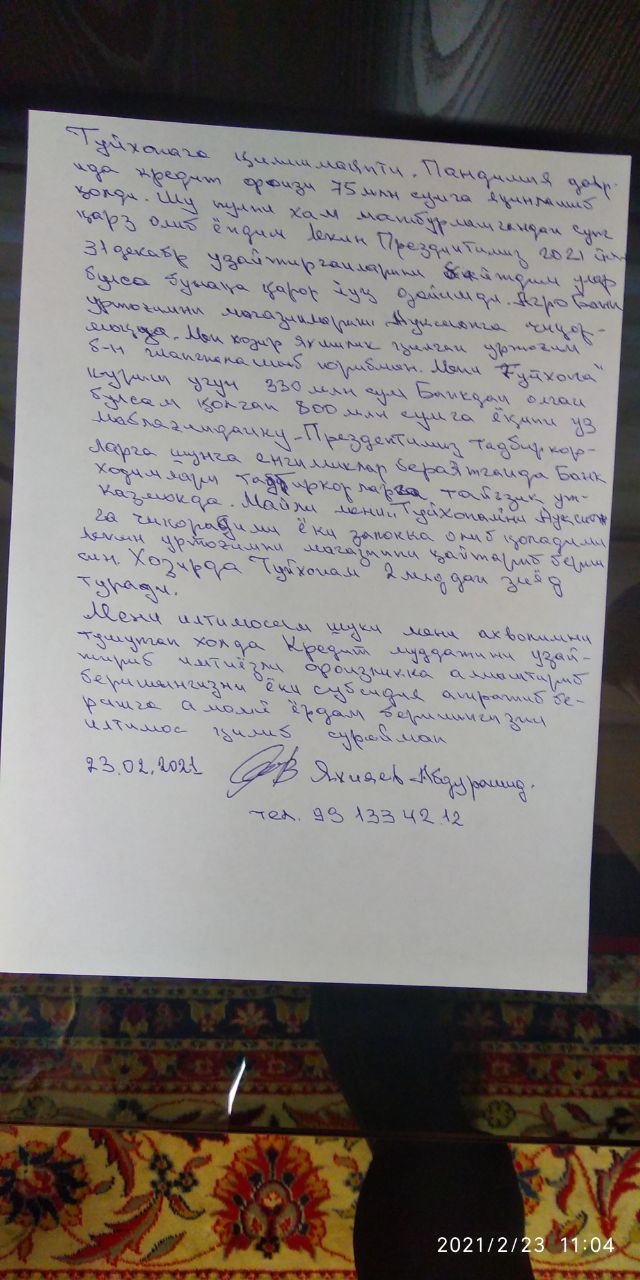 Туйхонага қилишмаяпти. Пандимия давр-
ида кредит фоизи 75 млн сумга яқинлашиб
қолди. Шу пулни хам мажбурлашгандан сунг
қарз олиб ёпдим лекин Президтимиз 2021 йил
31 декабр узайтирганларини айтдим улар
булса бунака қарор йуқ дейишди. Агро Банк
уртоғимни магазинларини Аукционга чиқор-
моқда. Мен хозир яхшилик қилган уртоғим
б-н гаплашиб юрибман. Мени "Туйхона"
қуриш учун 330 млн сум Банкдан олган
булсам қолган 800 млн сумга ёқини уз
маблағимданку - Прездентимиз тадбиркор-
ларга шунча енгиликлар бераётганда Банк
ходимлари тадбиркорларга тайзиқ ут-
казмокда. Майли мени Туйхонамни Аукцион
га чикорадими ёки запокка олиб қоладими
лекин уртоғимни магазинни қайтариб берин
син. Хозирда Туйхонам 2 млд дан зиёд
туради.
Мени илтимосим шуки мени ахволимни
тушунган холда Кредит муддатини узай-
тириб имтиёзли фоизликка алиштириб
беришингизни ёки субсидия ажратиб бе-
ришга амалий ёрдам беришингизни
илтимос қилиб сурайман
23.02.2021 Яхияев Абдурашид.
тел. 99 133 42 12
2021/2/23 11:04